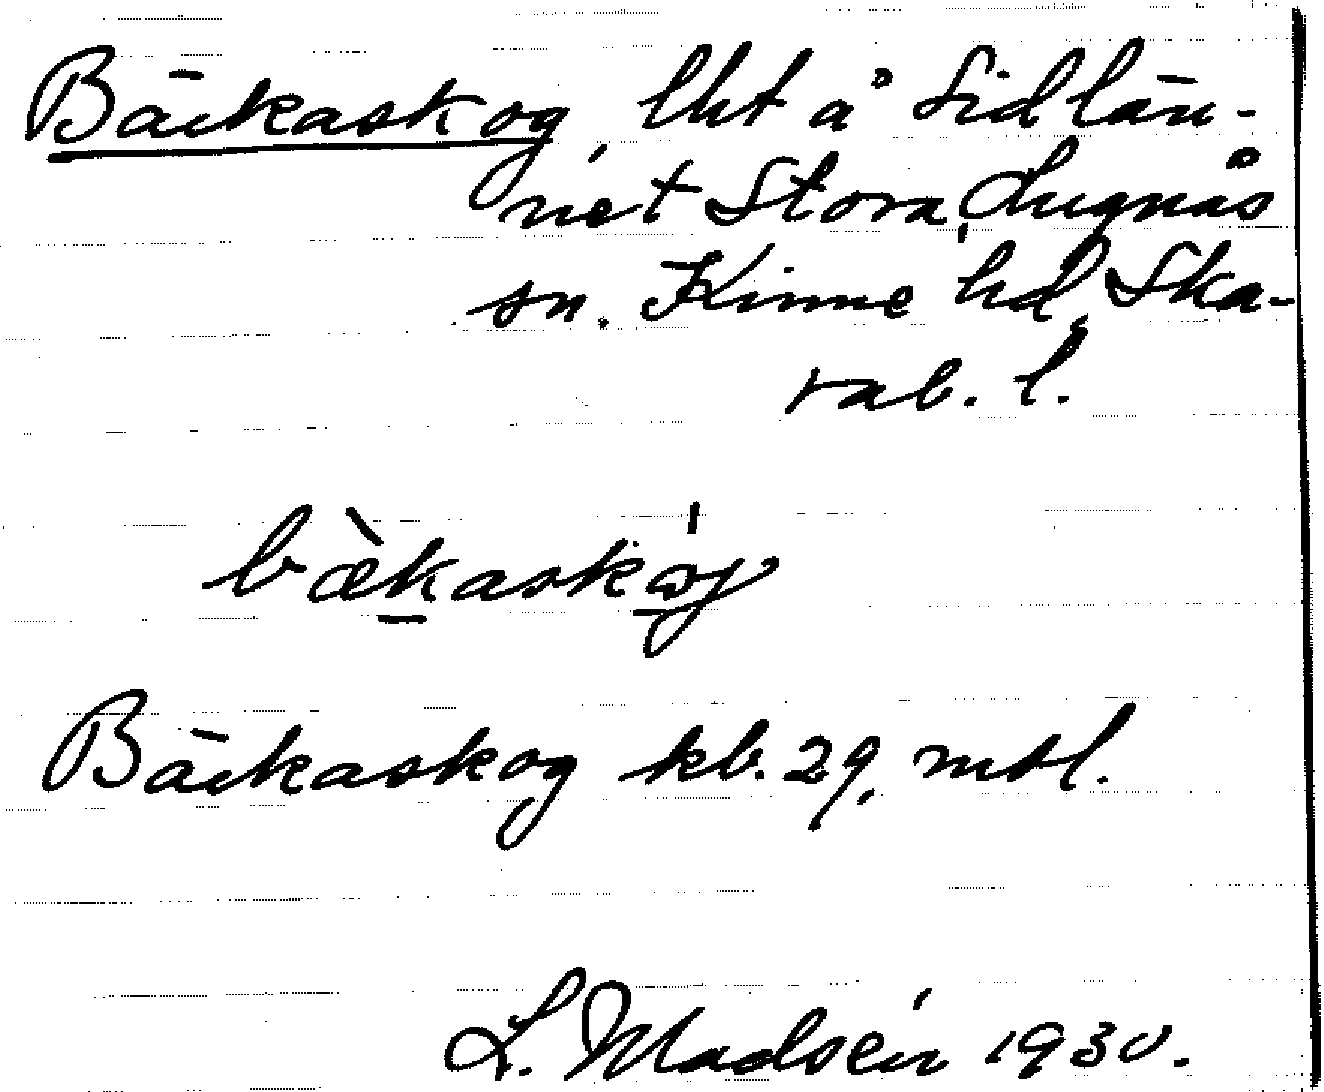 Bäckaskog, lht å Sidlän-
net Stora, Lugnås
sn. Kinne hd, Ska-
rab. l.
bækaskoj
Bäckaskog kb. 29, mtl.
L. Madsén 1930.